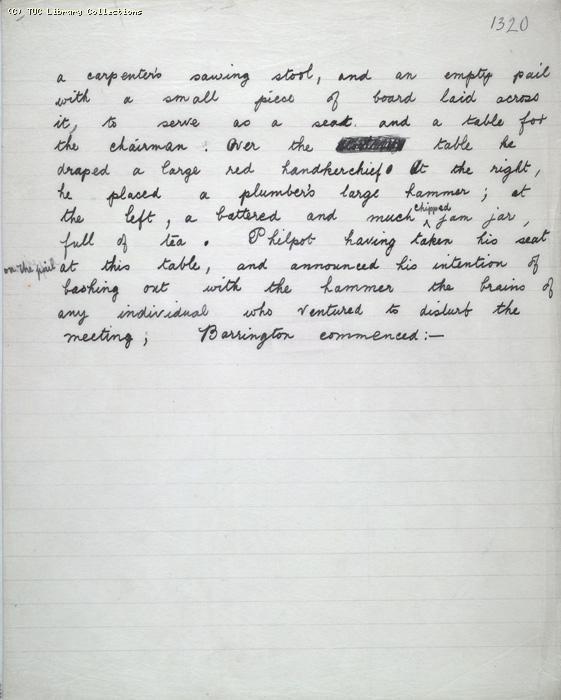 (C) TUC Library Collections
1320
a carpenter's sawing stool, and an empty pail
with a small piece of board laid across
it, to serve as a seat and a table for
the chairman. Over the table he
draped a large red handkerchief. At the right,
he placed a plumber's large hammer; at
the left, a battered and much chipped jam jar,
full of tea. Philpot having taken his seat
on the pail at this table, and announced his intention of
bashing out with the hammer the brains of
any individual who ventured to disturb the
meeting; Barrington commenced:—